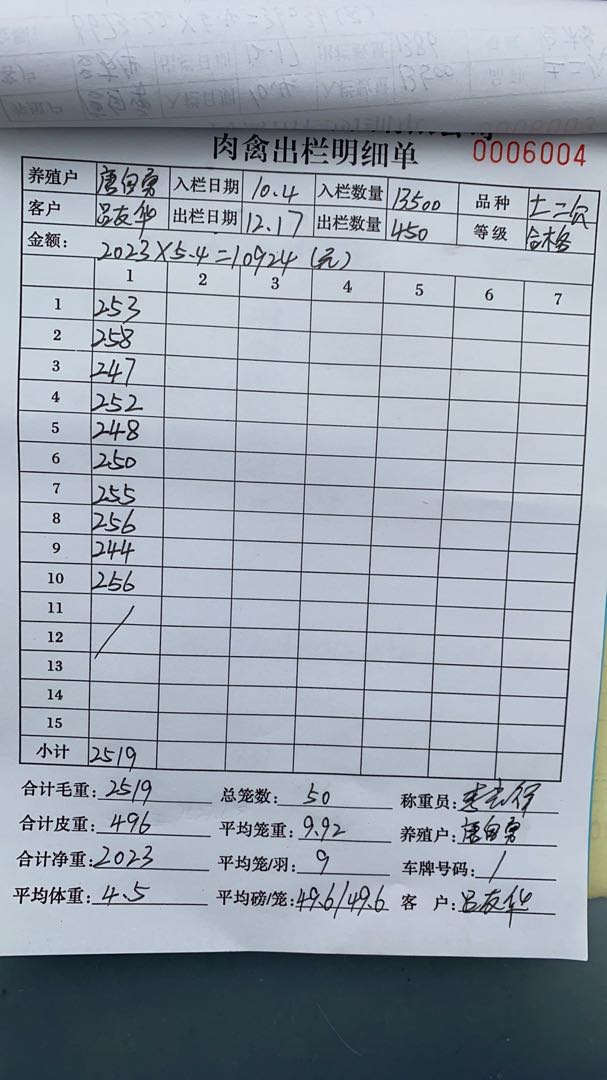 肉禽出栏明细单 0006004
养殖户 唐自勇 入栏日期 10.4 入栏数量 13500 品种 土二穴
客户 吕友华 出栏日期 12.17 出栏数量 450 等级 合格
金额: 2023×5.4=10924(元)
1 2 3 4 5 6 7
1 253
2 258
3 247
4 252
5 248
6 250
7 255
8 256
9 244
10 256
11
12
13
14
15
小计 2519
合计毛重: 2519 总笼数: 50 称重员:
合计皮重: 496 平均笼重: 9.92 养殖户: 唐自勇
合计净重: 2023 平均笼/羽: 9 车牌号码: /
平均体重: 4.5 平均磅/笼: 49.6/49.6 客 户: 吕友华